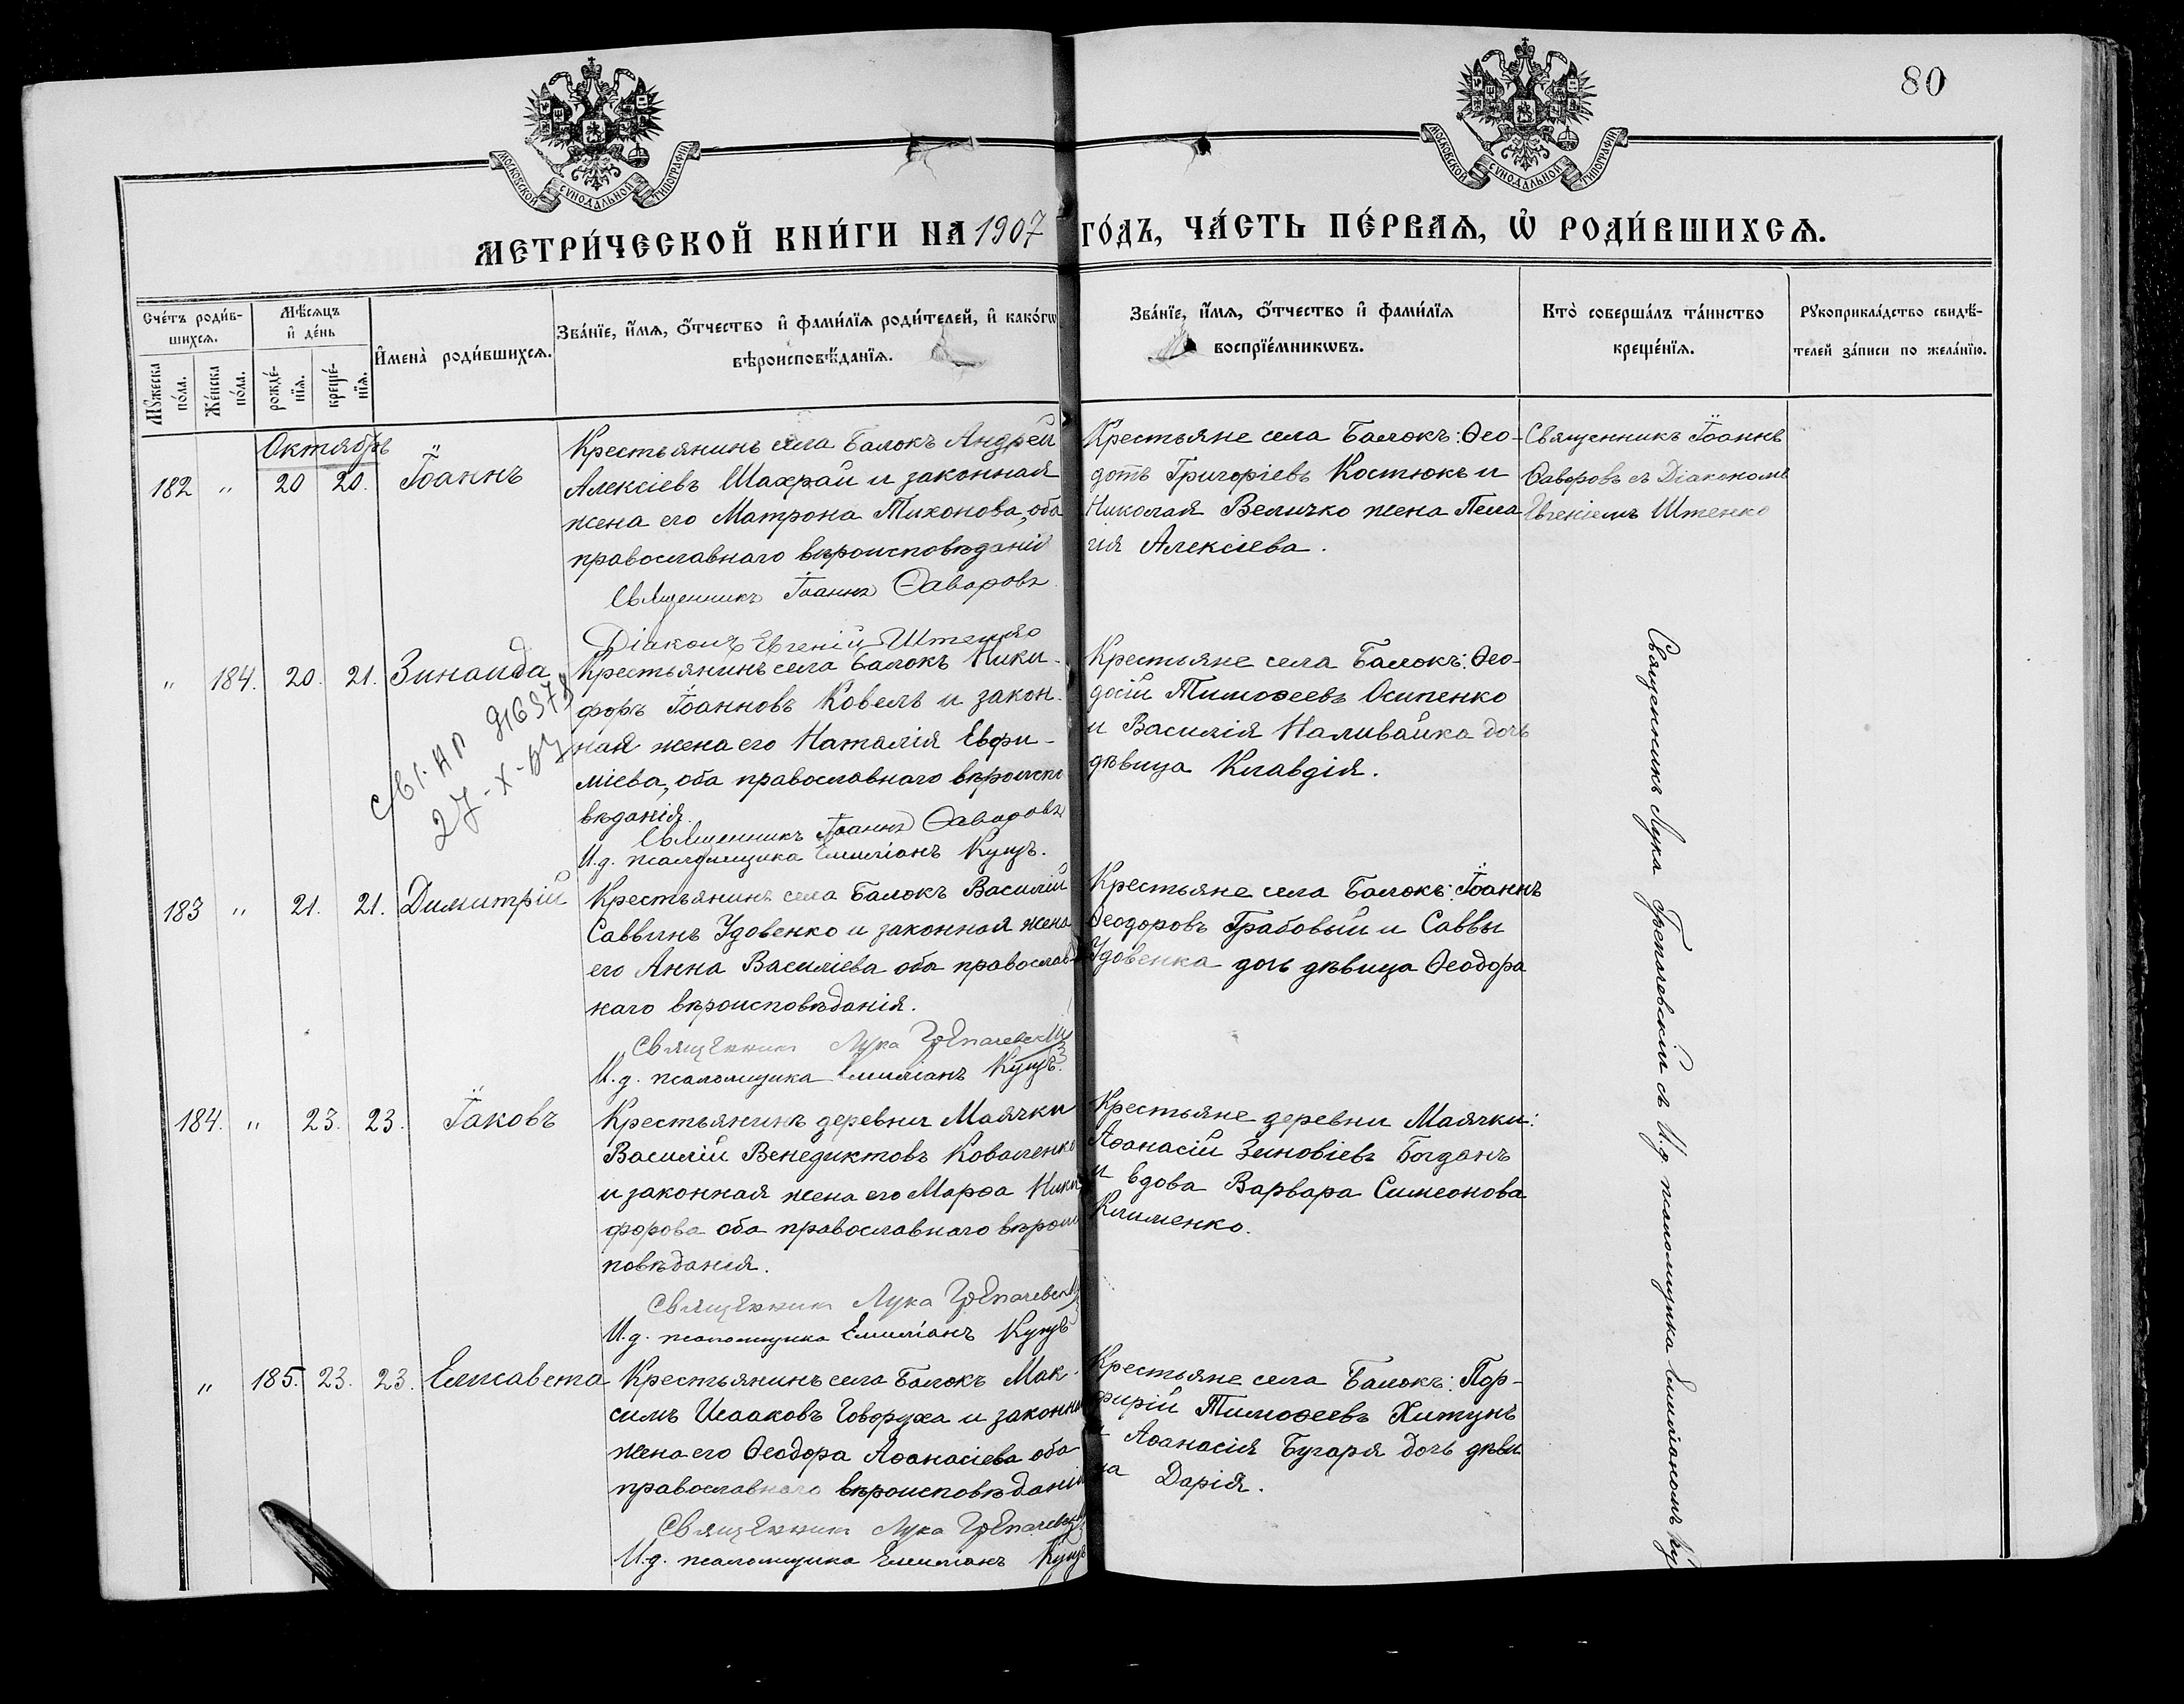 80
МОСКОВСКОЙ СѴНОДАЛЬНОЙ ТИПОГРАФІИ
МОСКОВСКОЙ СѴНОДАЛЬНОЙ ТИПОГРАФІИ
МЕТРИ́ЧЕСКОЙ КНИ́ГИ НА 1907 ГО́ДЪ, ЧА́СТЬ ПЕ́РВАѦ, Ѡ҆ РОДИ́ВШИХСѦ.
Сче́тъ роди́в-
шихсѧ.
Мꙋжеска по́ла.
Же́нска по́ла.
Мѣ́сѧцъ
и҆ де́нь
рожде́-
нїѧ.
креще́-
нїѧ.
И҆мена̀ роди́вшихсѧ.
Зва́нїе, и҆́мѧ, ѻ҆́тчество и҆ фами́лїѧ роди́телей, и҆ како́гѡ
вѣроисповѣ́данїѧ.
Зва́нїе, и҆́мѧ, ѻ҆́тчество и҆ фами́лїѧ
воспрїе́мникѡвъ.
Кто̀ соверша́лъ та́инство
креще́нїѧ.
Рꙋкоприкла́дство свидѣ́-
телей за́писи по жела́нїю.
Октябрь
182 " 20 20. Іоаннъ
Крестьянинъ села Балокъ Андрей
Алексіевъ Шахрай и законная
жена его Матрона Тихонова, оба
православнаго вѣроисповѣданія
Священникъ Іоаннъ Ѳаворовъ
Діаконъ Евгеній Штенко
Крестьяне села Балокъ: Ѳео-
дотъ Григоріевъ Костюкъ и
Николая Величко жена Пела
гія Алексіева.
Священникъ Іоаннъ
Ѳаворовъ съ Діакономъ
Евгеніемъ Штенко
" 184. 20. 21. Зинаида
27-X-
Крестьянинъ села Балокъ Ники-
форъ Іоанновъ Ковель и закон-
ная жена его Наталія Евфи-
міева, оба православнаго вѣроиспо
вѣданія.
Священникъ Іоаннъ Ѳаворовъ
И.д. псаломщика Емиліанъ Куцъ.
Крестьяне села Балокъ: Ѳео-
досій Тимоѳеевъ Осипенко
и Василія Наливайка дочь
дѣвица Клавдія.
183 " 21. 21. Димитрій
Крестьянинъ села Балокъ Василій
Саввинъ Удовенко и законная жена
его Анна Василіева оба православ-
наго вѣроисповѣданія.
Священникъ Лука Грепачевскій
И.д. псаломщика Емиліанъ Куцъ.
Крестьяне села Балокъ: Іоаннъ
Ѳеодоровъ Грабовый и Саввы
Удовенка дочь дѣвица Ѳеодора
184. " 23. 23. Іаковъ
Крестьянинъ деревни Маячки
Василій Венедиктовъ Коваленко
и законная жена его Марѳа Ники
форова оба православнаго вѣроис
повѣданія.
Священникъ Лука Грепачевскій
И.д. псаломщика Емиліанъ Куцъ
Крестьяне деревни Маячки:
Аѳанасій Зиновіевъ Богданъ
и вдова Варвара Симеонова
Клименко.
" 185. 23. 23. Елисавета
Крестьянинъ села Балокъ Мак-
симъ Исааковъ Говоруха и законная
жена его Ѳеодора Аѳанасіева оба
православнаго вѣроисповѣданія
Священникъ Лука Грепачевскій
И.д. псаломщика Емиліанъ Куцъ
Крестьяне села Балокъ: Пор-
фирій Тимоѳеевъ Хитунъ
и Аѳанасія Бугаря дочь дѣви
ца Дарія.
Священникъ Лука Грепачевскій съ И.д. псаломщика Емиліаномъ Ку